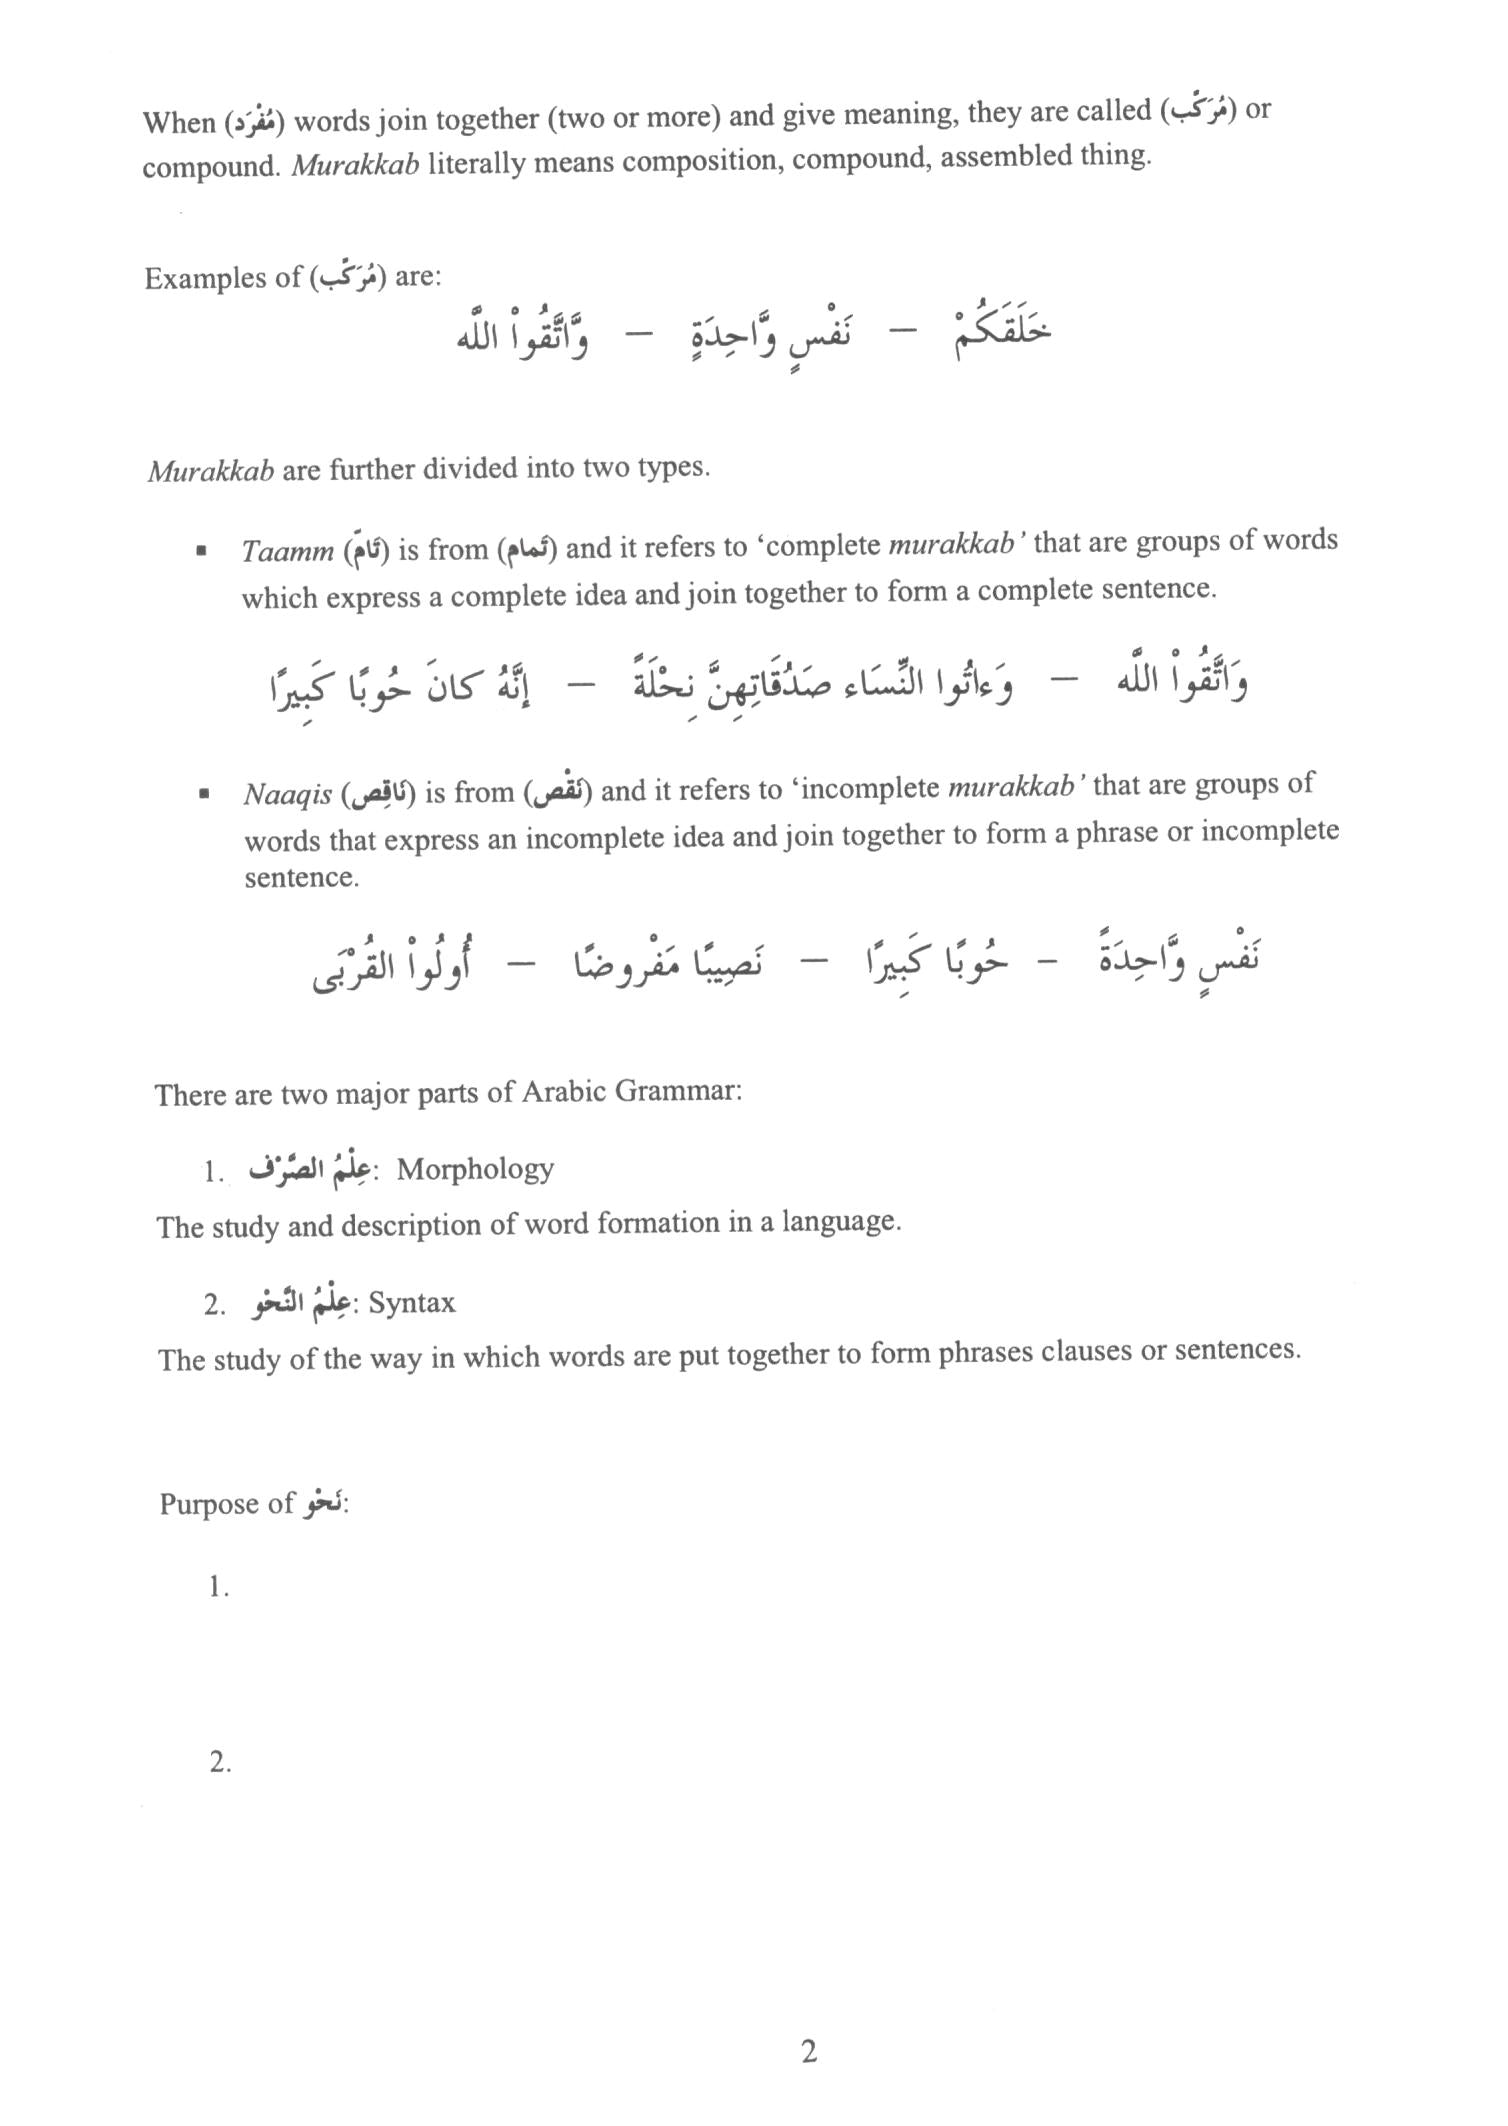 When (مُفْرَد) words join together (two or more) and give meaning, they are called (مُرَكَّب) or
compound. Murakkab literally means composition, compound, assembled thing.
Examples of (مُرَكَّب) are:
خَلَقَكُمْ – نَفْسٍ وَّاحِدَةٍ – وَّاتَّقُواْ اللَّه
Murakkab are further divided into two types.
▪ Taamm (تَامّ) is from (تَمام) and it refers to ‘complete murakkab’ that are groups of words
which express a complete idea and join together to form a complete sentence.
وَاتَّقُواْ اللَّه – وَءاتُوا النِّسَاء صَدُقَاتِهِنَّ نِحْلَةً – إِنَّهُ كانَ حُوبًا كَبِيرًا
▪ Naaqis (نَاقِص) is from (نَقْص) and it refers to ‘incomplete murakkab’ that are groups of
words that express an incomplete idea and join together to form a phrase or incomplete
sentence.
نَفْسٍ وَّاحِدَةً – حُوبًا كَبِيرًا – نَصِيبًا مَفْروضًا – أُولُواْ القُرْبَى
There are two major parts of Arabic Grammar:
1. عِلْمُ الصَّرْف: Morphology
The study and description of word formation in a language.
2. عِلْمُ النَّحْو: Syntax
The study of the way in which words are put together to form phrases clauses or sentences.
Purpose of نَحْو:
1.
2.
2